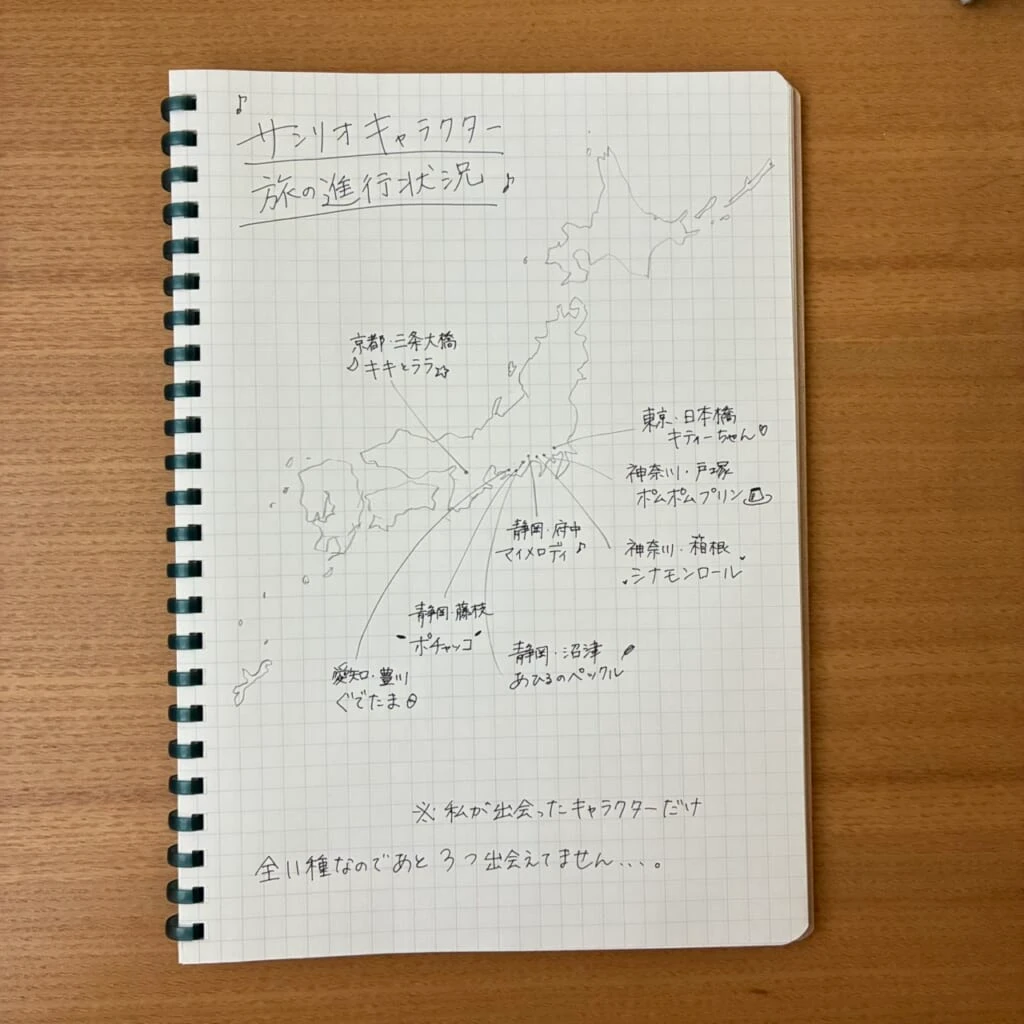 ♪
サンリオキャラクター
旅の進行状況 ♪
京都・三条大橋
♪キキとララ☆
東京・日本橋
キティーちゃん♡
神奈川・戸塚
ポムポムプリン
静岡・府中
マイメロディ♪
神奈川・箱根
シナモンロール
静岡・藤枝
ポチャッコ
静岡・沼津
あひるのペックル
愛知・豊川
ぐでたま
※私が出会ったキャラクターだけ
全11種なのであと3つ出会えてません....。